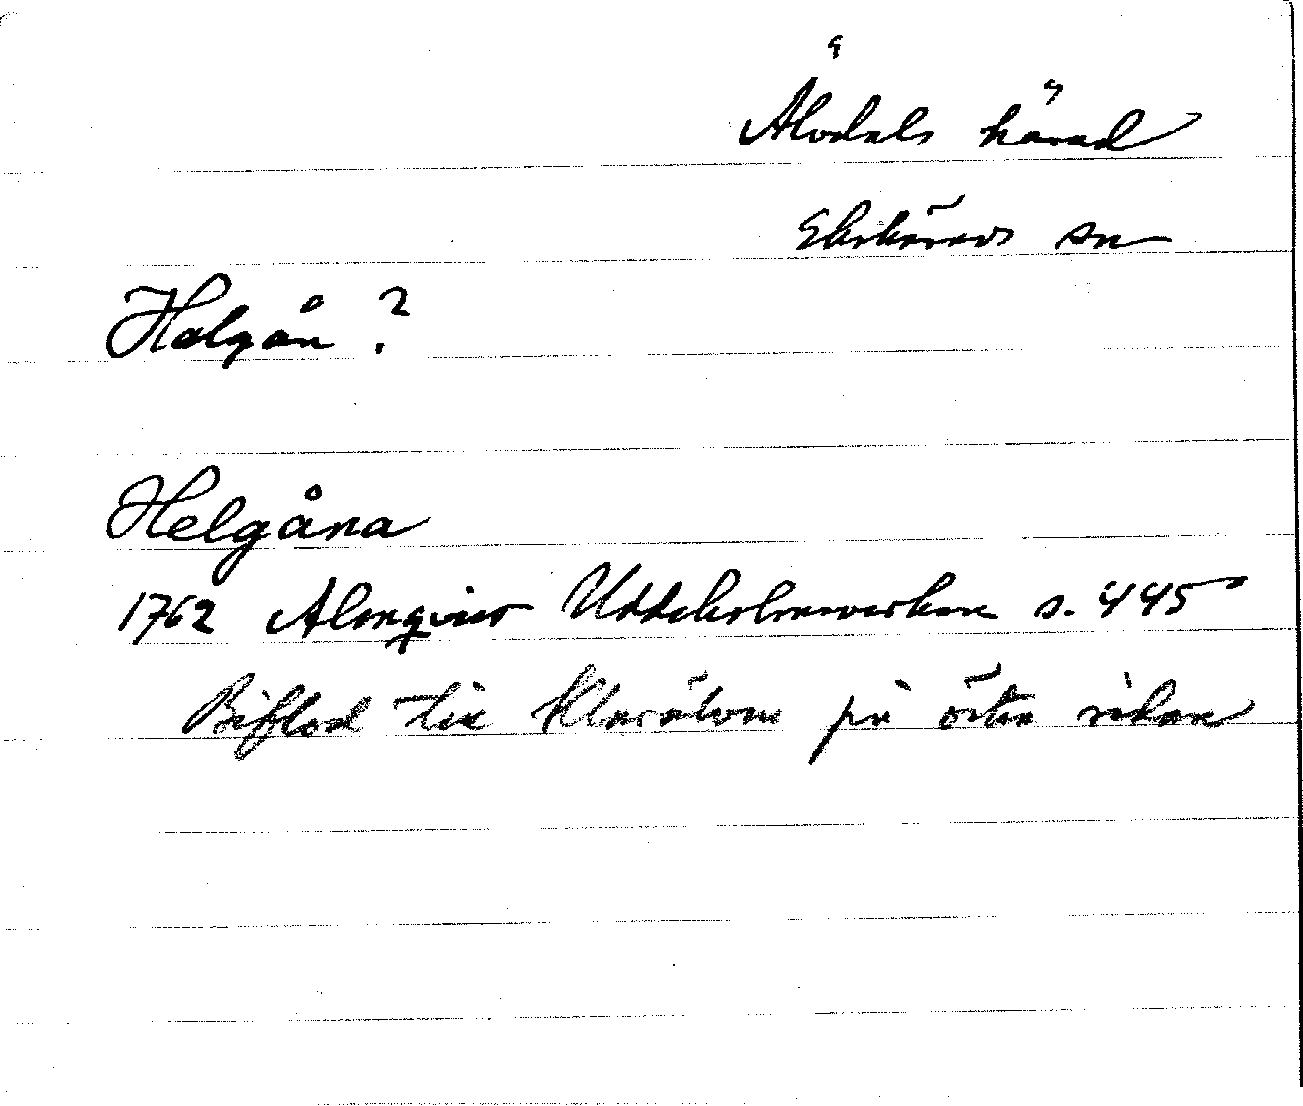 Älvdals härad
Ekshärads sn
Halgån ?
Helgåna
1762 Almqvist Uddeholmsverken s. 445
Biflod till Klarälven på östra sidan